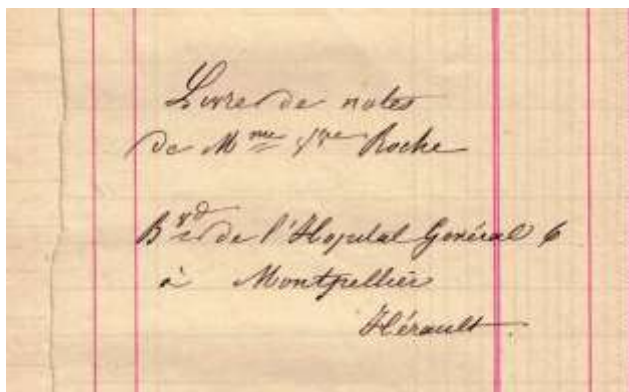 Livre de notes
de Mme Vve Roche
Bvd de l'Hopital Général 6
à Montpellier
Hérault